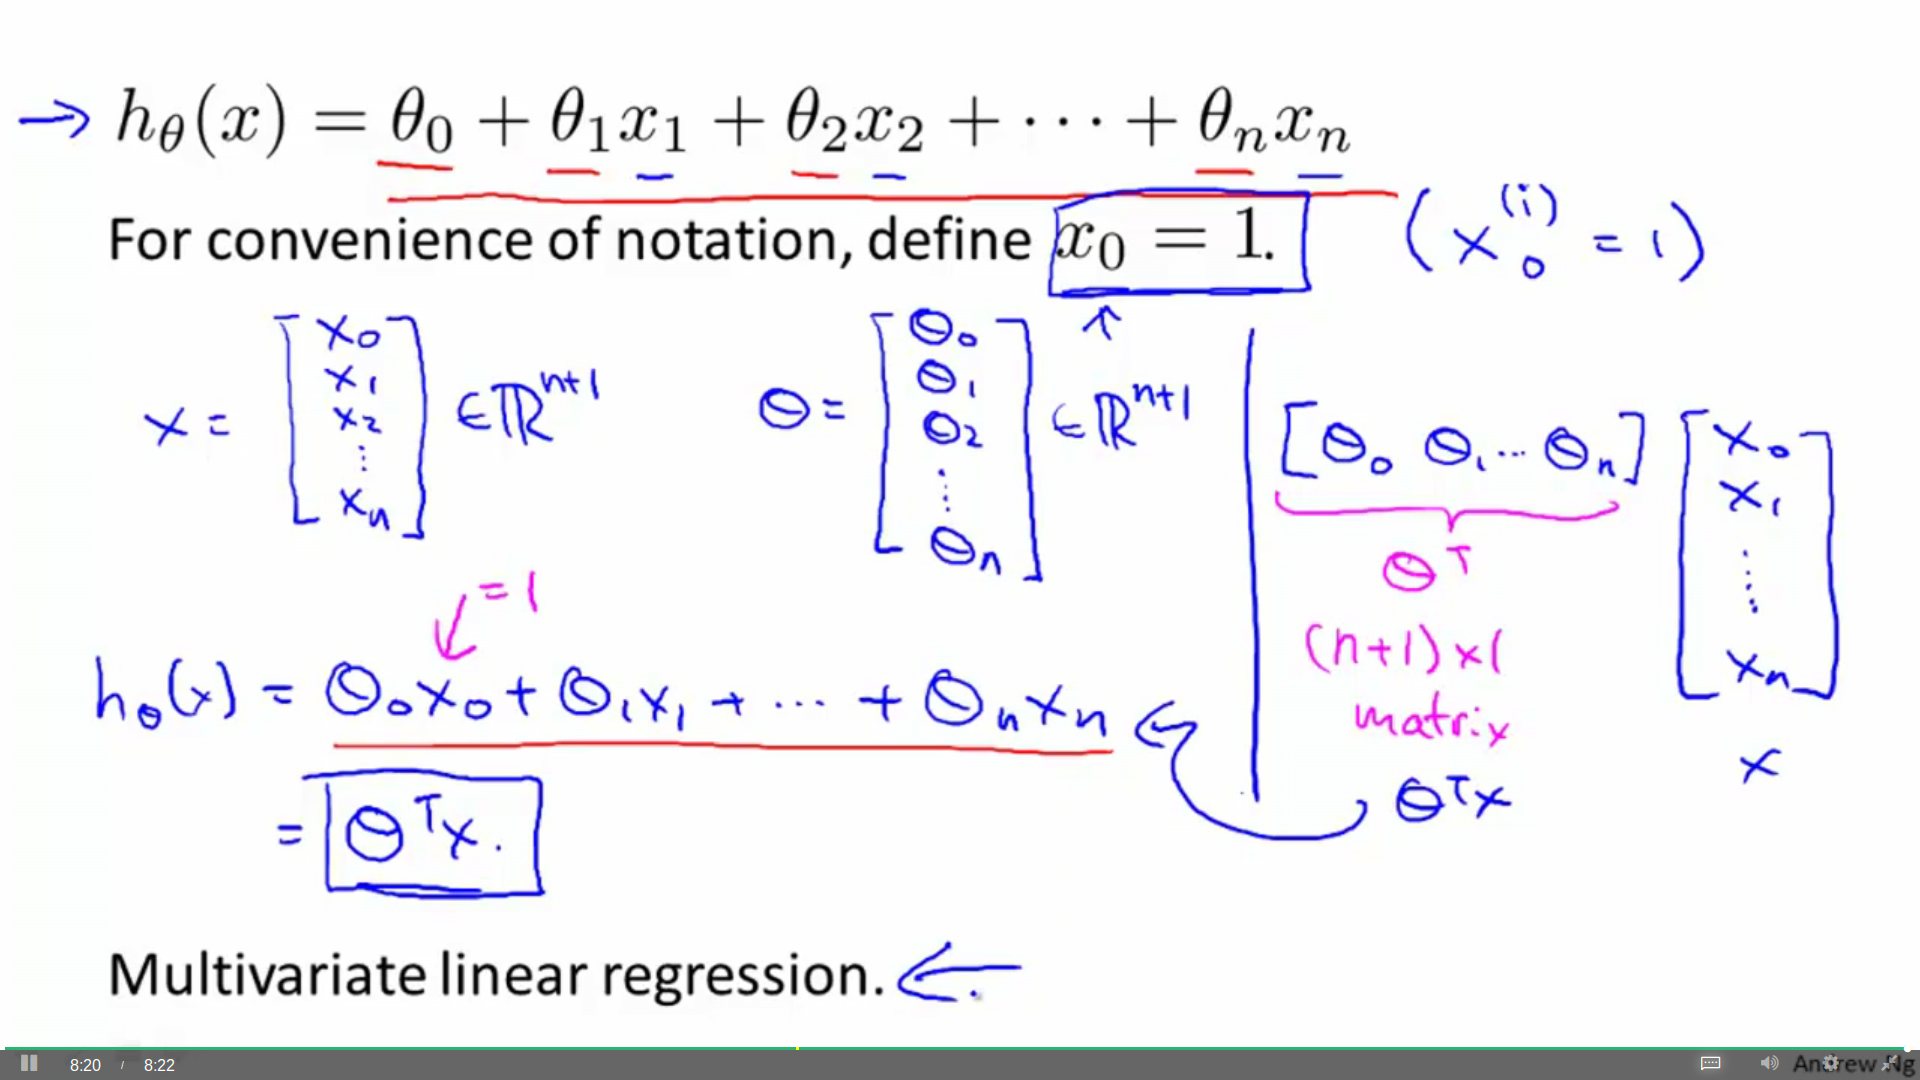 → hθ(x) = θ₀ + θ₁x₁ + θ₂x₂ + ⋯ + θₙxₙ
For convenience of notation, define x₀ = 1. (x₀⁽ⁱ⁾ = 1)
x = [x₀ x₁ x₂ ⋮ xₙ] ∈ ℝⁿ⁺¹
θ = [θ₀ θ₁ θ₂ ⋮ θₙ] ∈ ℝⁿ⁺¹
= 1
hθ(x) = θ₀x₀ + θ₁x₁ + ⋯ + θₙxₙ
= θᵀx.
[θ₀ θ₁ ⋯ θₙ] [x₀ x₁ ⋮ xₙ]
θᵀ
(n+1) × 1
matrix
x
θᵀx
Multivariate linear regression. ←
8:20 / 8:22
Andrew Ng